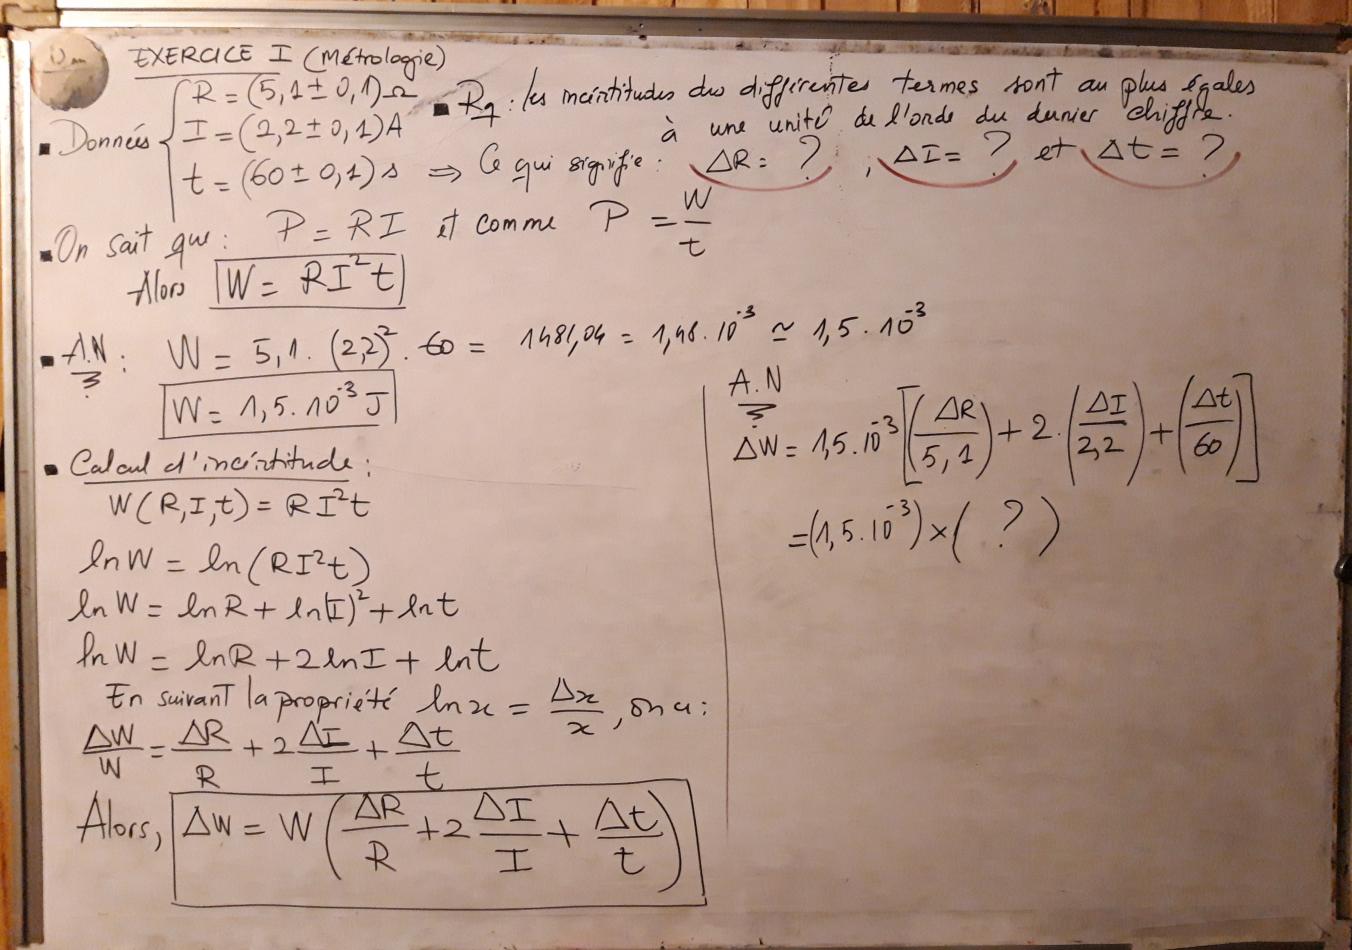 EXERCICE I (Métrologie)
▪ Données { R = (5,1 ± 0,1) Ω
I = (2,2 ± 0,1) A
t = (60 ± 0,1) s
▪ Rq : les incértitudes des différentes termes sont au plus égales
à une unité de l'orde du dernier chiffre.
⇒ Ce qui signifie : ΔR = ? , ΔI = ? et Δt = ?
▪ On sait que : P = RI et comme P = W/t
Alors W = RI²t
▪ A.N : W = 5,1 . (2,2)² . 60 = 1481,04 = 1,48.10⁻³ ≃ 1,5.10⁻³
W = 1,5.10⁻³ J
▪ Calcul d'incértitude :
W(R,I,t) = RI²t
ln W = ln(RI²t)
ln W = ln R + ln(I)² + ln t
ln W = ln R + 2 ln I + ln t
En suivant la propriété ln x = Δx/x , on a :
ΔW/W = ΔR/R + 2 ΔI/I + Δt/t
Alors, ΔW = W (ΔR/R + 2 ΔI/I + Δt/t)
A.N
ΔW = 1,5.10⁻³ [(ΔR/5,1) + 2.(ΔI/2,2) + (Δt/60)]
= (1,5.10⁻³) × ( ? )